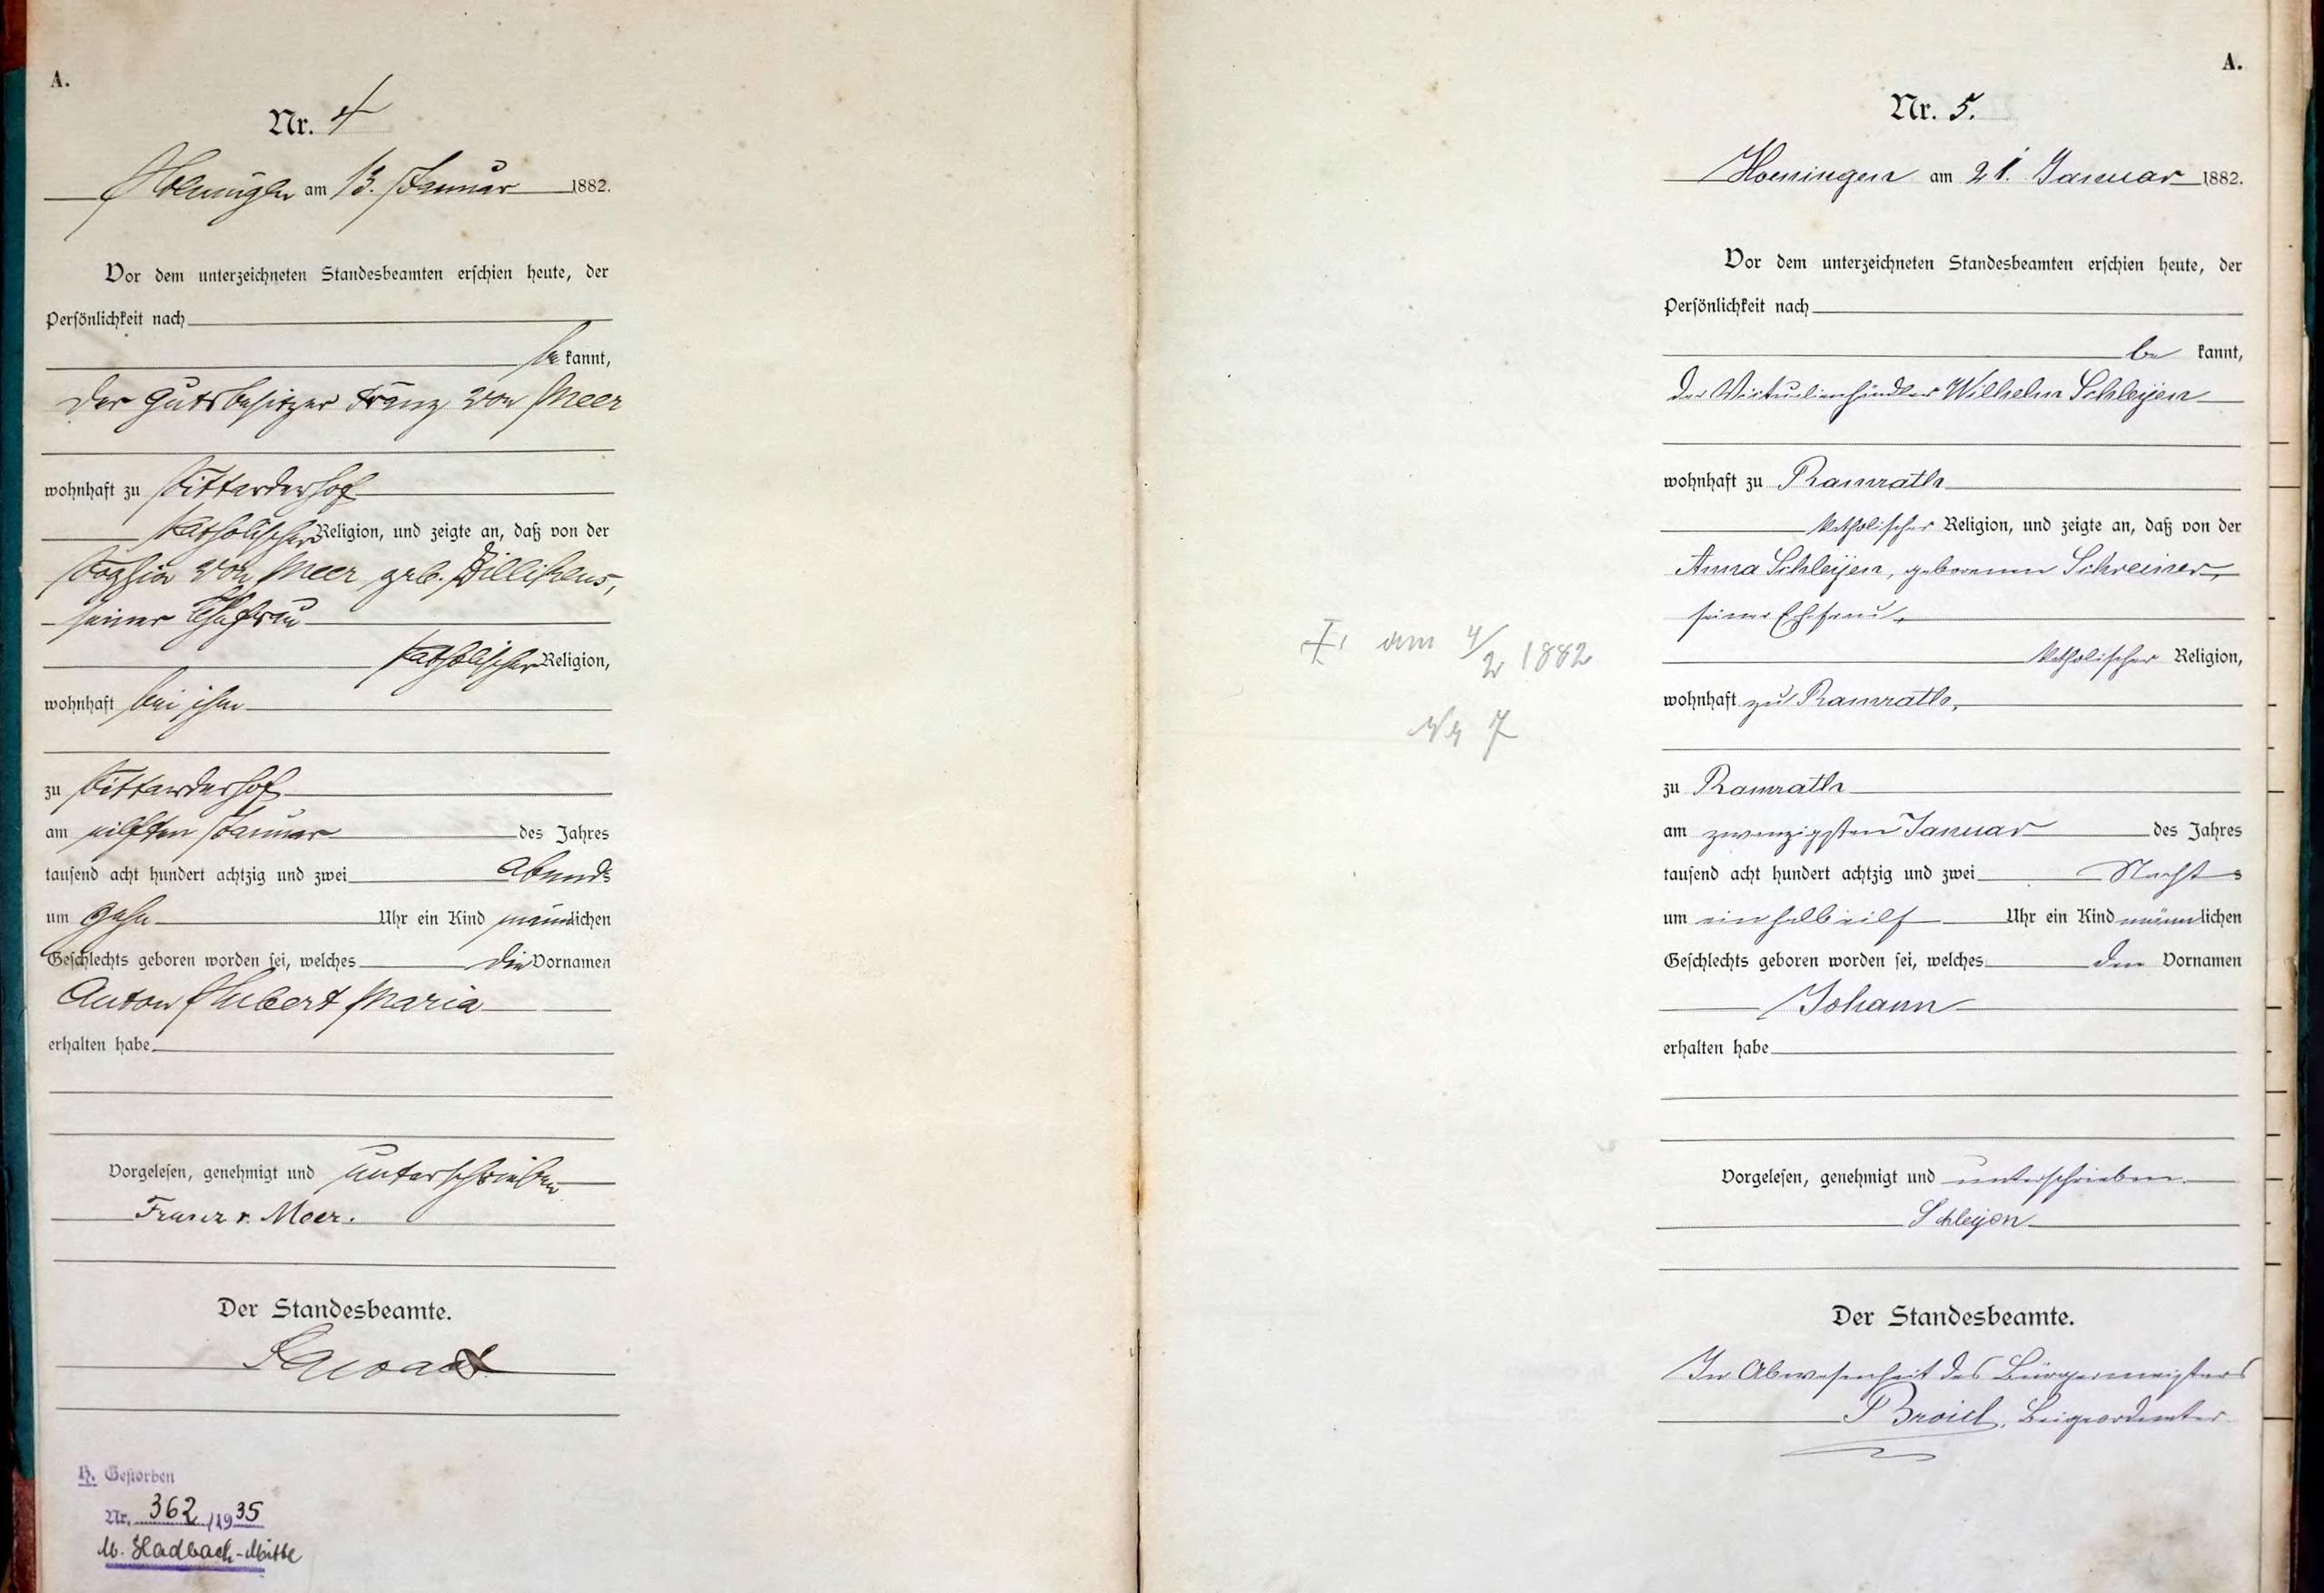 A.
Nr. 4
Hoeningen am 13. Januar 1882.
Vor dem unterzeichneten Standesbeamten erschien heute, der
Persönlichkeit nach
be kannt,
der Gutsbesitzer Franz von Meer
wohnhaft zu Sittarderhof
katholischer Religion, und zeigte an, daß von der
Sophia von Meer geb. Dillikens,
seiner Ehefrau
katholischer Religion,
wohnhaft bei ihm
zu Sittarderhof
am eilften Januar des Jahres
tausend acht hundert achtzig und zwei Abends
um zehn Uhr ein Kind männlichen
Geschlechts geboren worden sei, welches die Vornamen
Anton Hubert Maria
erhalten habe.
Vorgelesen, genehmigt und unterschrieben
Franz v. Meer.
Der Standesbeamte.
H. Gestorben
Nr. 362 /1935
M. Gladbach-Mitte
A.
Nr. 5.
Hoeningen am 21. Januar 1882.
Vor dem unterzeichneten Standesbeamten erschien heute, der
Persönlichkeit nach
be kannt,
der Victualienhändler Wilhelm Schleijen
wohnhaft zu Ramrath
katholischer Religion, und zeigte an, daß von der
Anna Schleijen, geborenen Schreiner,
seiner Ehefrau,
katholischer Religion,
wohnhaft zu Ramrath,
zu Ramrath
am zwanzigsten Januar des Jahres
tausend acht hundert achtzig und zwei Nachts
um ein halb eilf Uhr ein Kind männlichen
Geschlechts geboren worden sei, welches den Vornamen
Johann
erhalten habe
Vorgelesen, genehmigt und unterschrieben.
Schleijen
Der Standesbeamte.
In Abwesenheit des Bürgermeisters
P Broich, Beigeordneter
†. am 4/2 1882
Nr 7